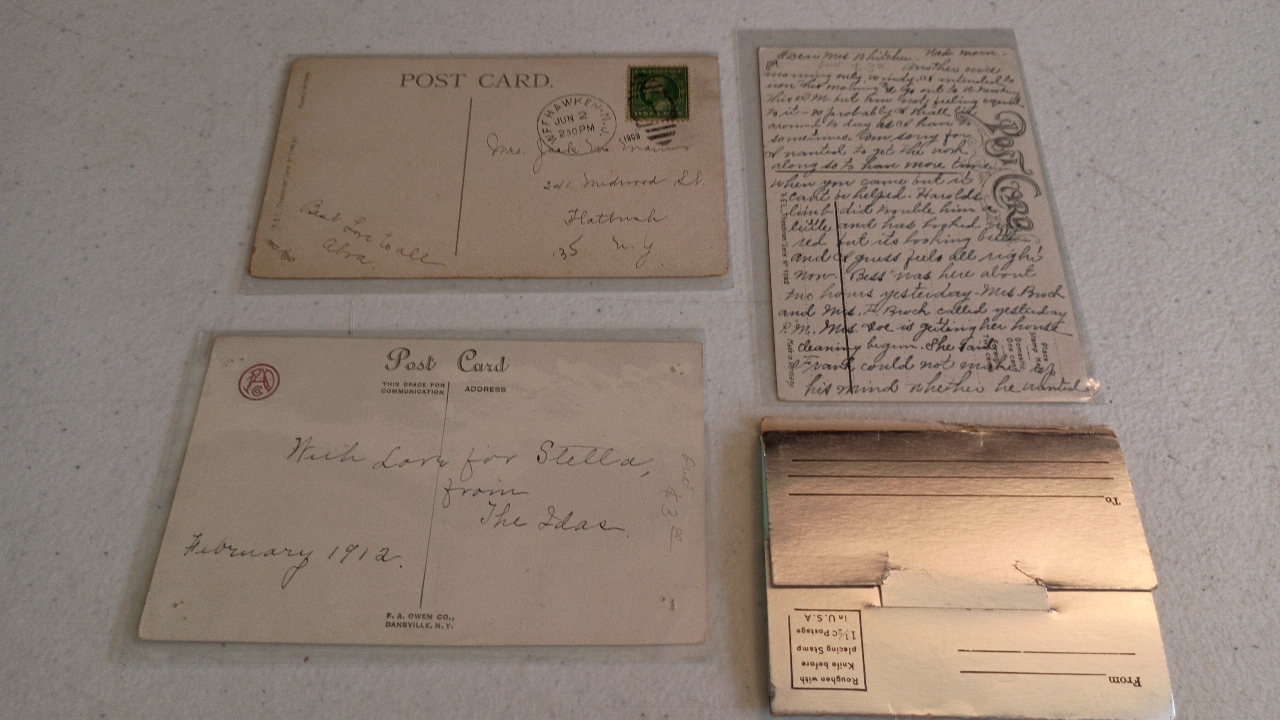 POST CARD.
WEEHAWKEN, N.J.
JUN 2
230 PM
1909
Mrs. Jack
241 Midwood St.
Flatbush
35 N. Y.
Best Love to all
Alva.
Post Card
THIS SPACE FOR
COMMUNICATION
ADDRESS
With Love for Stella,
from
The Idas.
February 1912.
F. A. OWEN CO.,
DANSVILLE, N. Y.
Dear Mrs Whitcher. Wed. morn.
Another nice
morning only windy. I intended to
iron this morning & go out to
this P.M. but am not feeling equal
to it - so probably I shall lie
around to day as I have to
sometimes. Am sorry for
I wanted to get the work
along so to have more time
when you came but it
cant be helped. Harolds
limb did trouble him a
little and has looked
red but its looking better
and I guess feels all right
now. Bess was here about
two hours yesterday - Mrs Broch
and Mrs. F. Broch called yesterday
P. M. Mrs. Doe is getting her house
cleaning begun. She said
Frank could not make up
his mind whether he wanted
POST CARD
Place
Stamp Here
Domestic
One cent
To
From
Roughen with
Knife before
placing Stamp
1½C Postage
in U.S.A